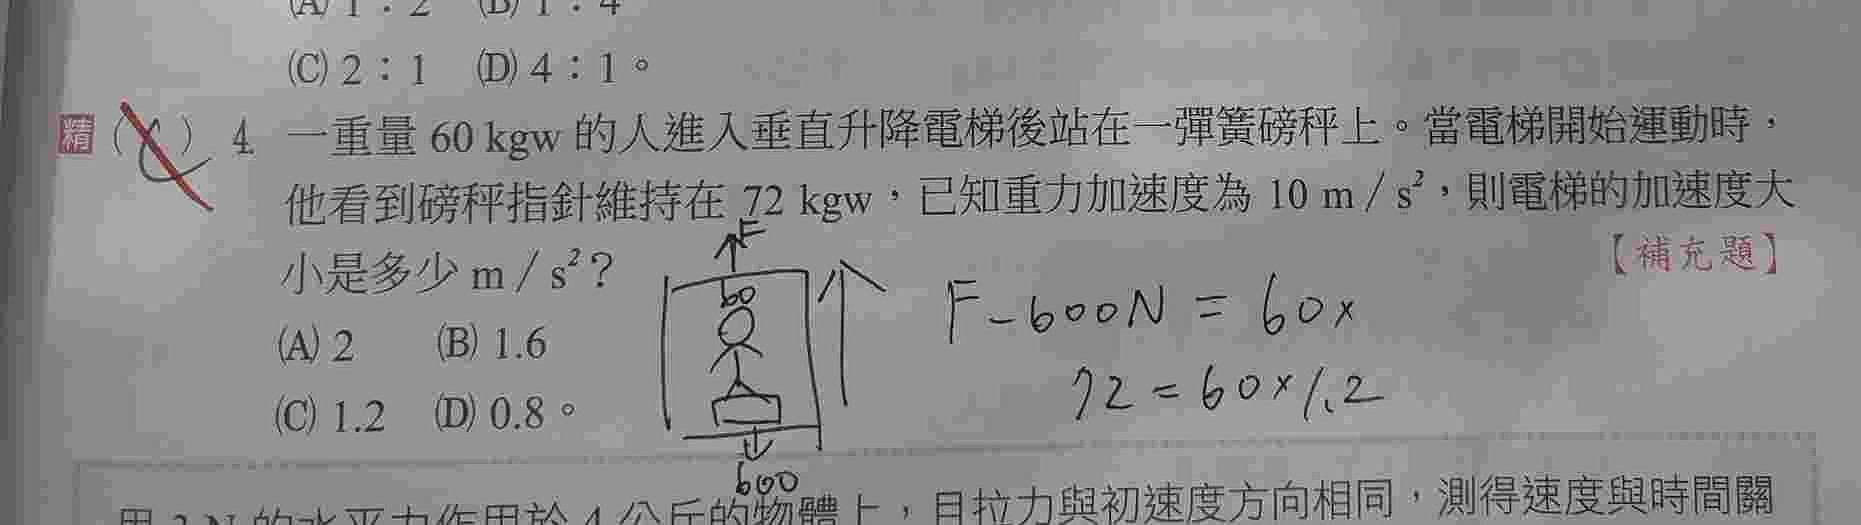 (A) 1：2　(B) 1：4
(C) 2：1　(D) 4：1。
精 ( C ) 4. 一重量 60 kgw 的人進入垂直升降電梯後站在一彈簧磅秤上。當電梯開始運動時，
他看到磅秤指針維持在 72 kgw，已知重力加速度為 10 m / s²，則電梯的加速度大
小是多少 m / s²？
【補充題】
F
60
F-600N = 60x
(A) 2　(B) 1.6
72 = 60×1.2
(C) 1.2　(D) 0.8。
600
用 2 N 的水平力作用於 4 公斤的物體上，且拉力與初速度方向相同，測得速度與時間關